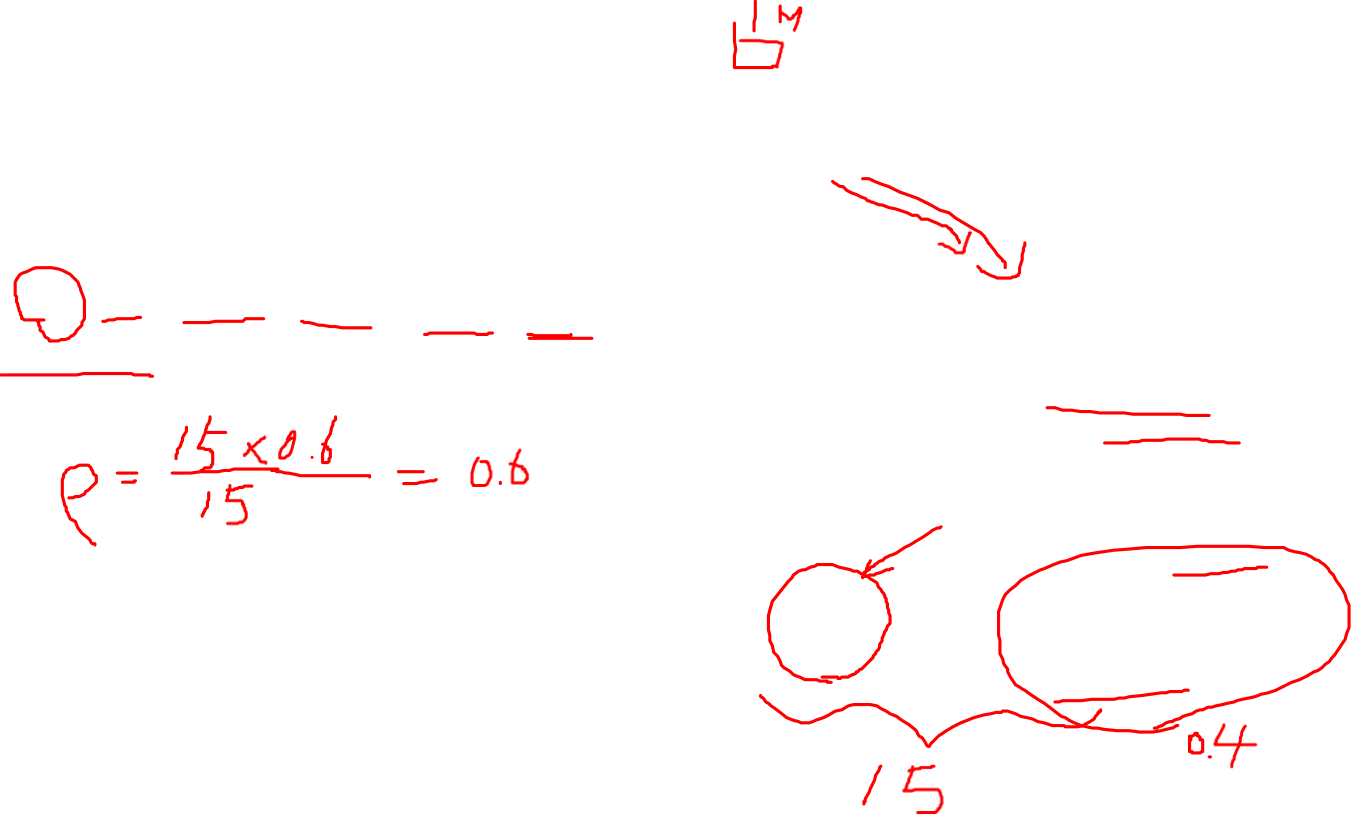 1 M
ρ = 15 × 0.6 / 15 = 0.6
0.4
15